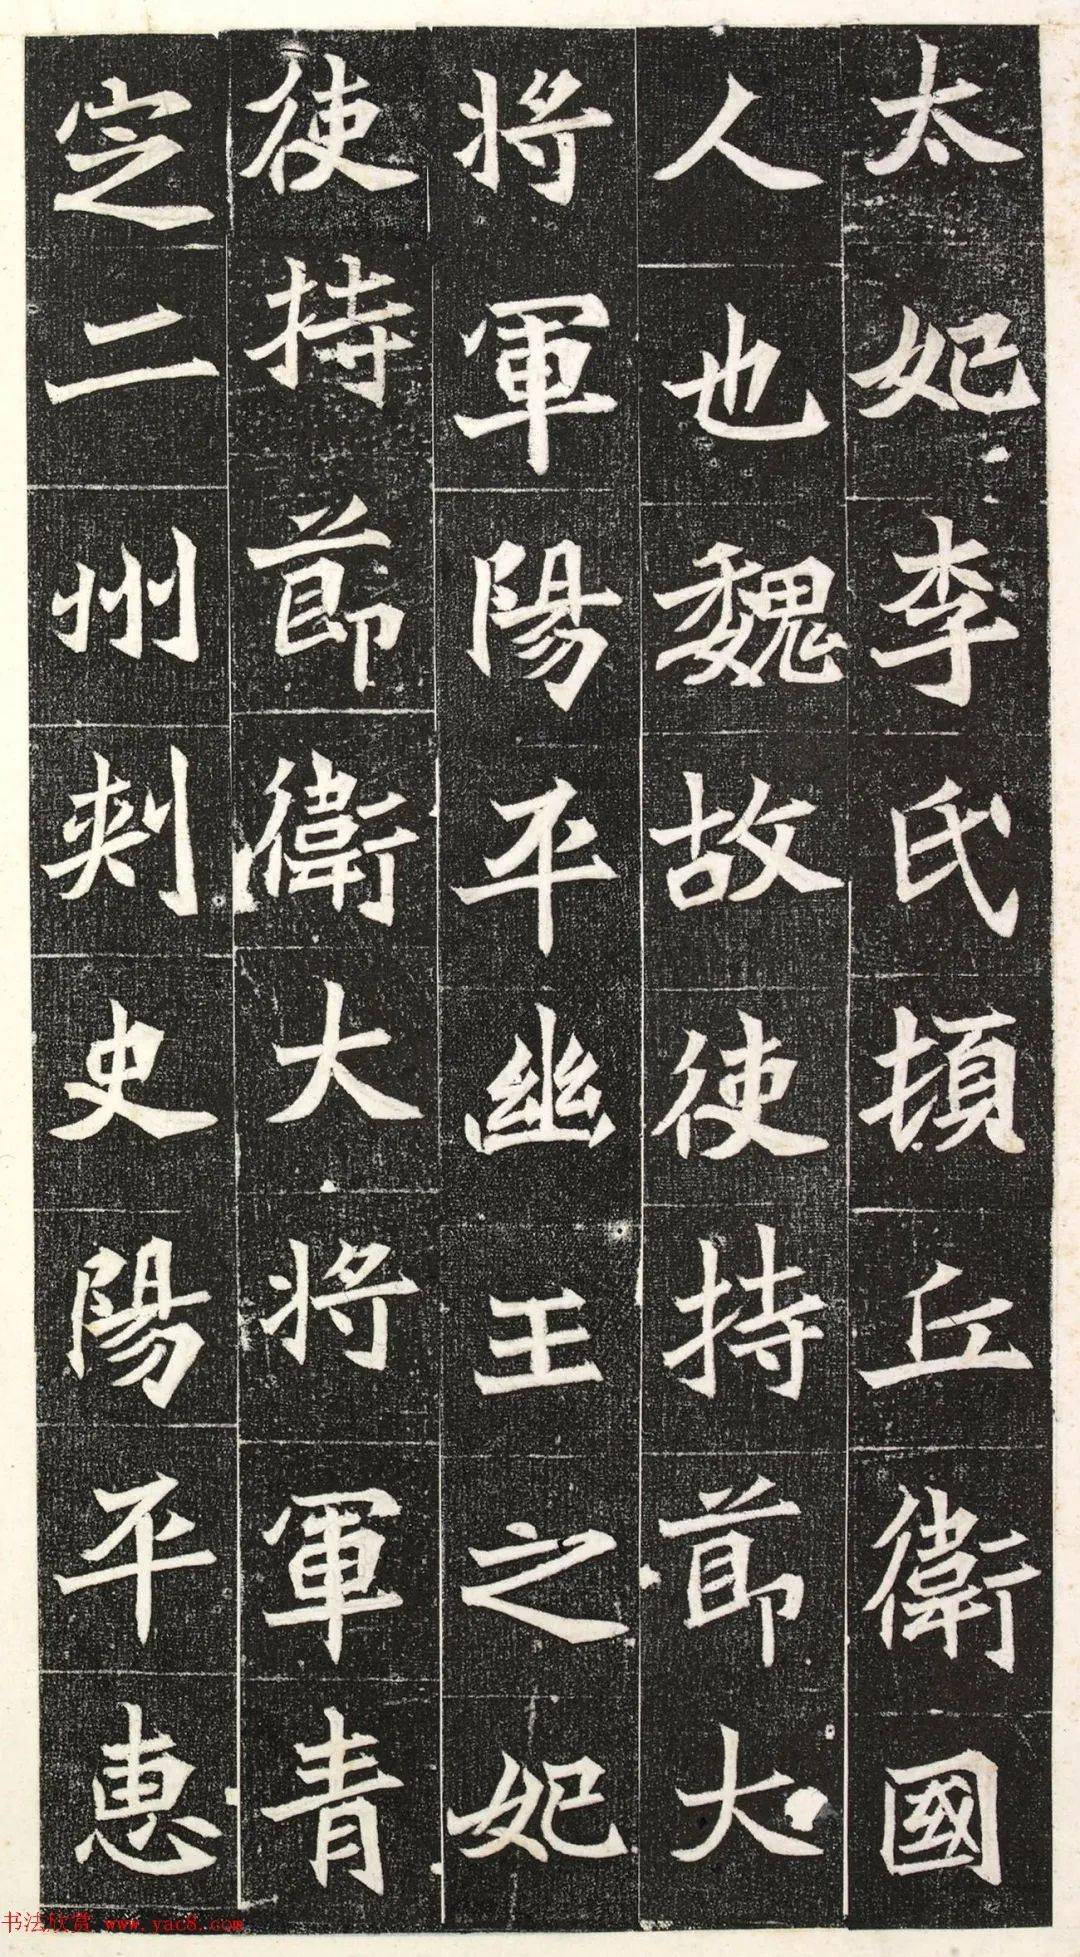 太妃李氏頓丘衛國
人也魏故使持節大
將軍陽平幽王之妃
使持節衛大將軍青
定二州刺史陽平惠
书法欣赏 www.yac8.com